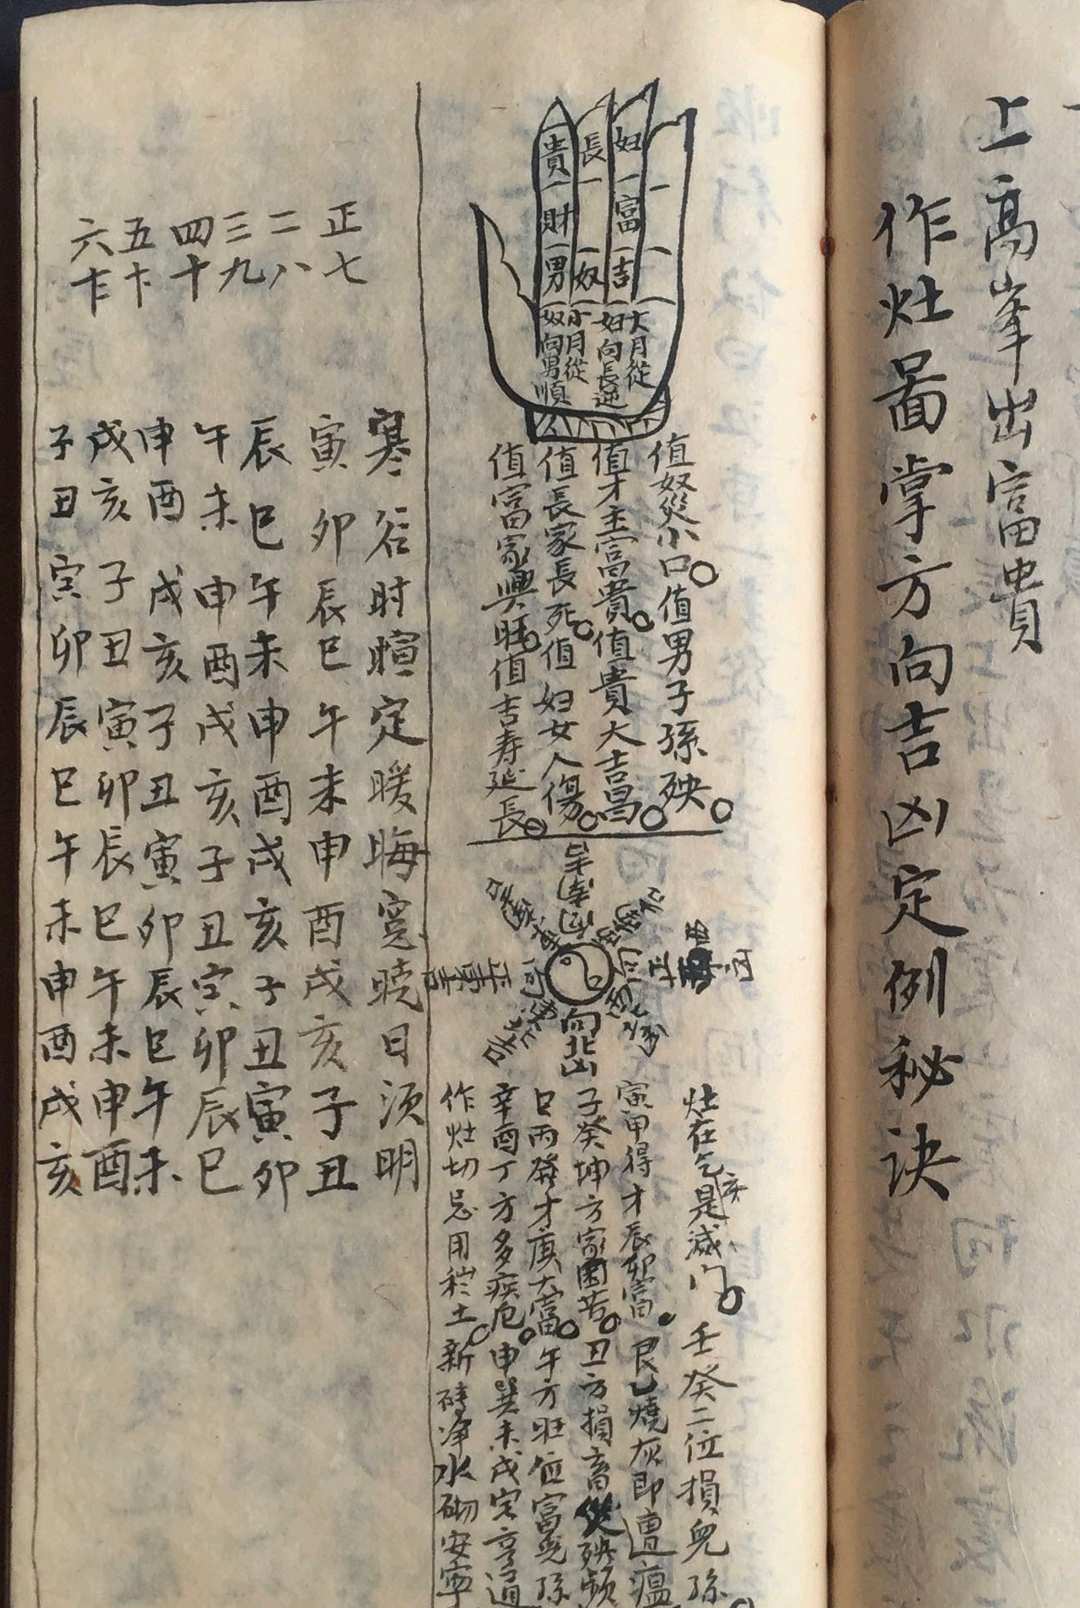 上高峯出富貴
作灶圖掌方向吉凶定例秘诀
妇
富
吉
長
奴
貴
財
男
大月從
妇向長逆
小月從
奴向男順
值奴災小口值男子孫殃
值才主富貴值貴大吉昌
值長家長死值妇女人傷
值富家興旺值吉寿延長
向北山
灶在乞亥是滅门壬癸二位損兒孫
寅甲得才辰卯富艮乙燒灰即遭瘟
子癸坤方家困苦丑方損畜災殃頻
巳丙發才庚大富午方旺位富兒孫
辛酉丁方多疾厄申巽未戌宅亨通
作灶切忌用秽土新磚净水砌安寧
寒谷时暄定暖晦寬曉日須明
正七
寅卯辰巳午未申酉戌亥子丑
二八
辰巳午未申酉戌亥子丑寅卯
三九
午未申酉戌亥子丑寅卯辰巳
四十
申酉戌亥子丑寅卯辰巳午未
五
戌亥子丑寅卯辰巳午未申酉
六
子丑寅卯辰巳午未申酉戌亥